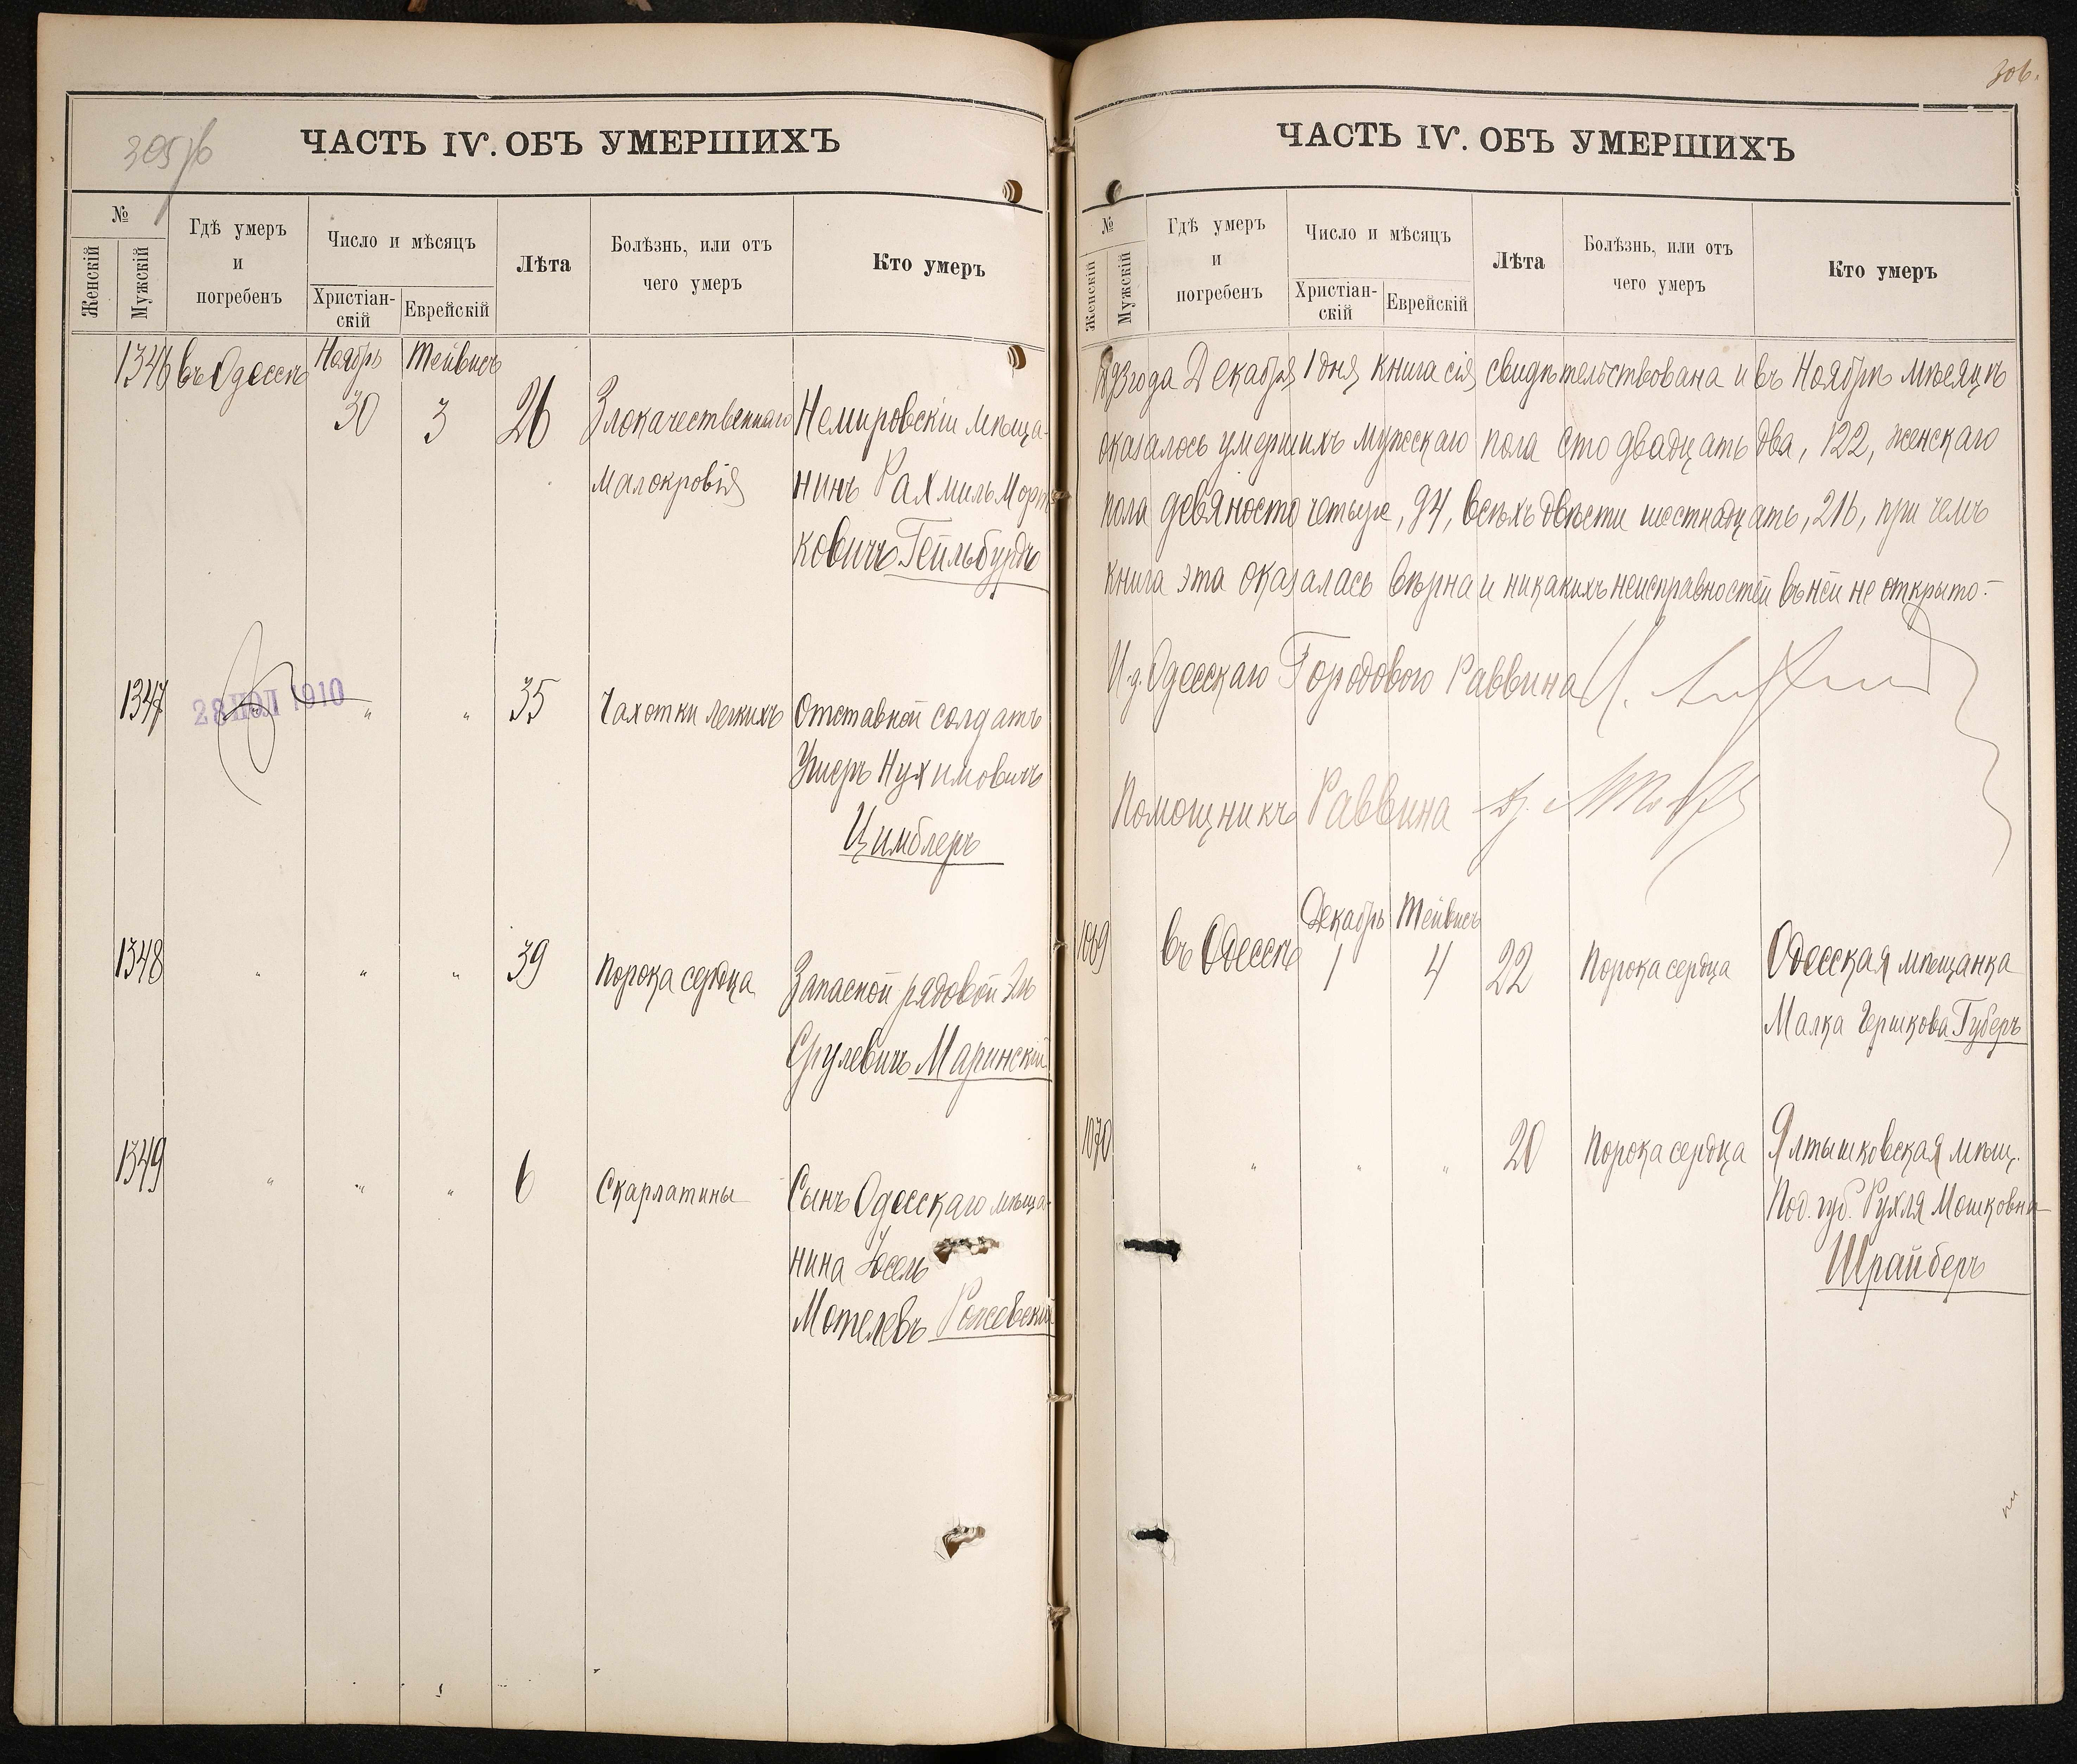 305 об
ЧАСТЬ IV. ОБЪ УМЕРШИХЪ
№
Женскій
Мужскій
Гдѣ умеръ
и
погребенъ
Число и мѣсяцъ
Христіан-
скій
Еврейскій
Лѣта
Болѣзнь, или отъ
чего умеръ
Кто умеръ
1346 въ Одессѣ Ноябрь Тейвисъ
30 3 26 Злокачественнаго Немировскій мѣща-
Малокровія нинъ Рахмиль Морт
ковичъ Гейльбурдъ
1347 28 ІЮЛ 1910 " " 35 Чахотки легкихъ Отставной солдатъ
Ушеръ Нухимовичъ
Цимблеръ
1348 " " " 39 Порока сердца Запасной рядовой
Срулевичъ Маринскій
1349 " " " 6 Скарлатины Сынъ Одесскаго мѣща-
нина Іосель
Мотелевъ
306.
ЧАСТЬ IV. ОБЪ УМЕРШИХЪ
№
Женскій
Мужскій
Гдѣ умеръ
и
погребенъ
Число и мѣсяцъ
Христіан-
скій
Еврейскій
Лѣта
Болѣзнь, или отъ
чего умеръ
Кто умеръ
1893 года Декабря 1 дня книга сія свидѣтельствована и въ Ноябрѣ мѣсяцѣ
оказалось умершихъ мужскаго пола сто двадцать два, 122, женскаго
пола девяносто четыре, 94, всѣхъ двѣсти шестнадцать, 216, при чемъ
книга эта оказалась вѣрна и никакихъ неисправностей въ ней не открыто.-
И.д. Одесскаго Городового Раввина
Помощникъ Раввина
1069 въ Одессѣ Декабрь Тейвисъ
1 4 22 Порока сердца Одесская мѣщанка
Малка Гершкова Губеръ
1070 " " " 20 Порока сердца Ялтышковская мѣщ.
Под. губ. Рухля Мошковна
Шрайберъ